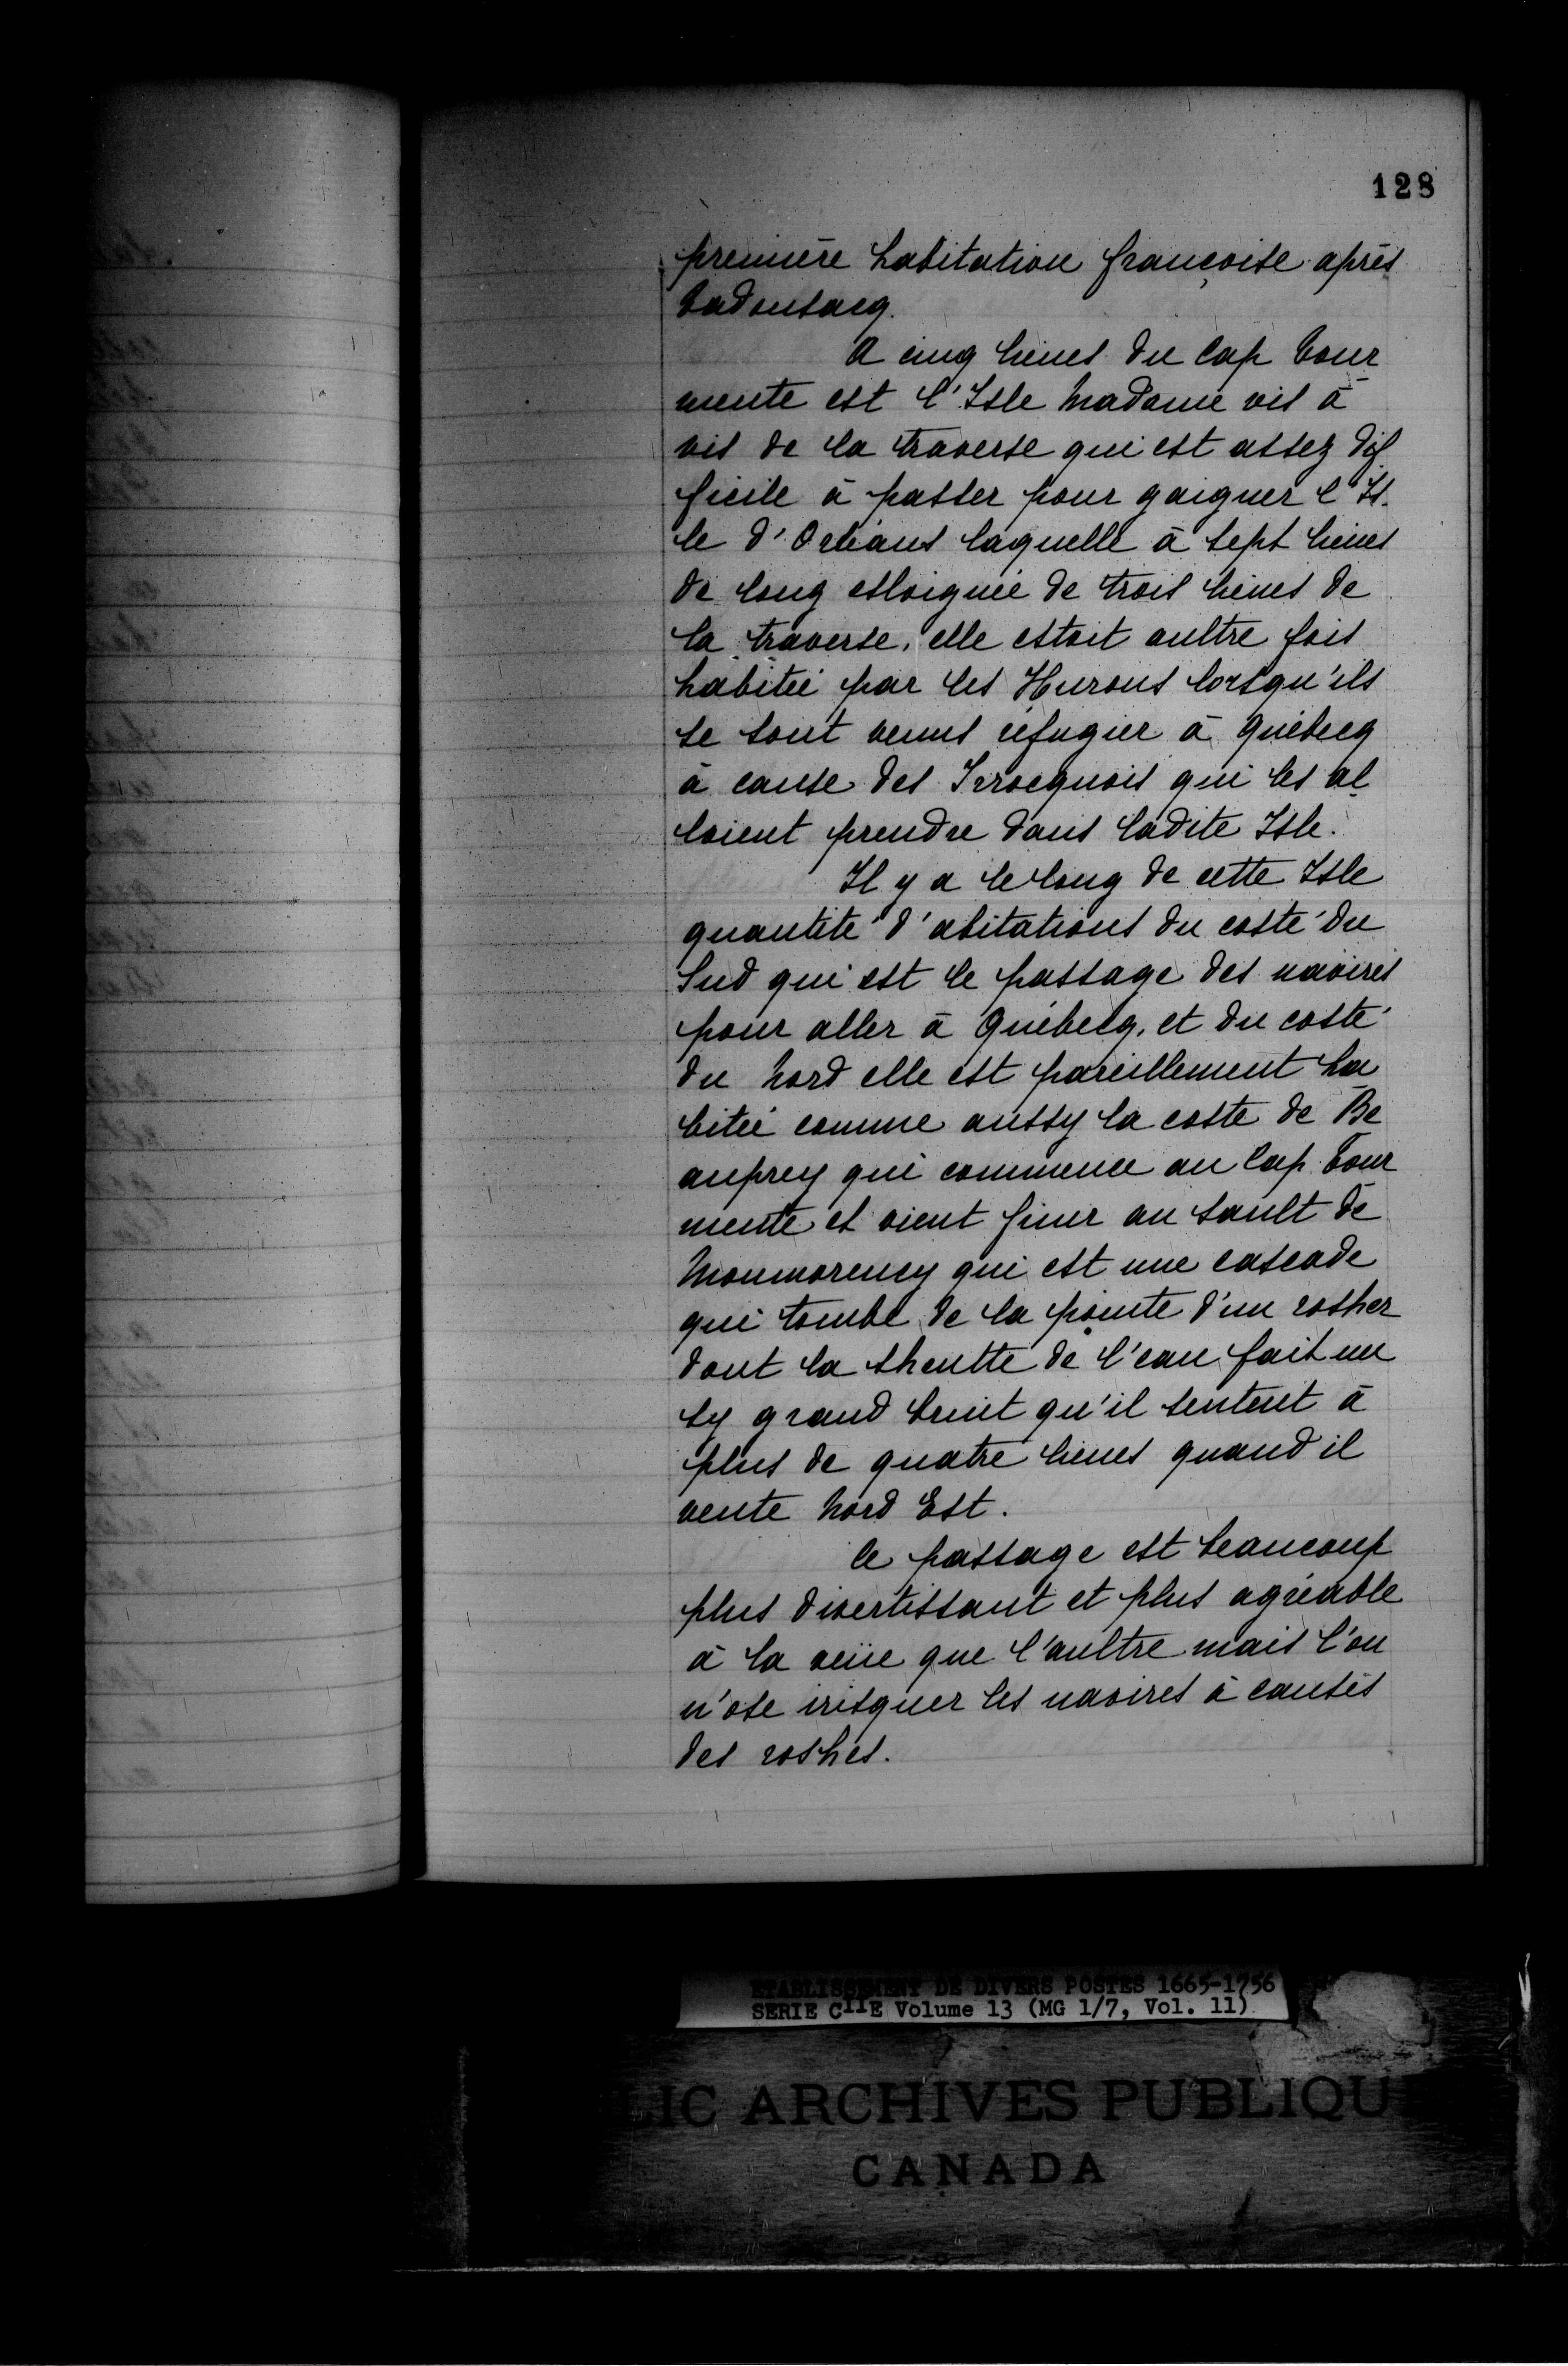 128
première habitation françoise après
Tadousacq.
A cinq lieues du Cap Tour
mente est l'Isle Madame vis à
vis de la traverse qui est assez dif
ficile à passer pour gaigner l'Is-
le d'Orléans laquelle à sept lieues
de long esloignée de trois lieues de
la traverse, elle estoit aultre fois
habitée par les Hurons lorsqu'ils
se sont venus réfugier à Québecq
à cause des Irrocquois qui les al
loient prendre dans ladite Isle.
Il y a le long de cette Isle
quantité d'abitations du costé du
Sud qui est le passage des navires
pour aller à Québecq, et du costé
du Nord elle est pareillement ha
bitée comme aussy la coste de Be
auprey qui commence au Cap Tour
mente et vient finir au sault de
Monmorency qui est une cascade
qui tombe de la pointe d'un rosher
dont la sheutte de l'eau fait un
sy grand bruit qu'il sentent à
plus de quatre lieues quand il
vente Nord Est.
le passage est beaucoup
plus divertissant et plus agréable
à la veüe que l'aultre mais l'on
n'ose irisquer les navires à causes
des roshes.
ETABLISSEMENT DE DIVERS POSTES 1665-1756
SERIE C11E Volume 13 (MG 1/7, Vol. 11)
LIC ARCHIVES PUBLIQU
CANADA